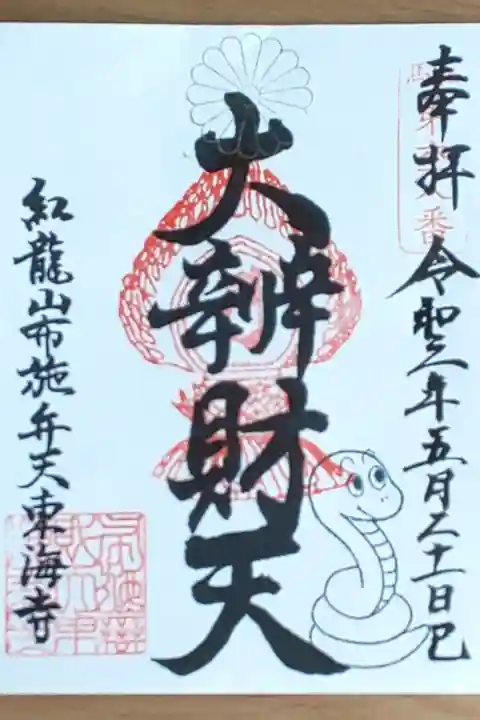 奉拝
令和三年五月二十一日巳
大辨財天
紅龍山布施弁天東海寺